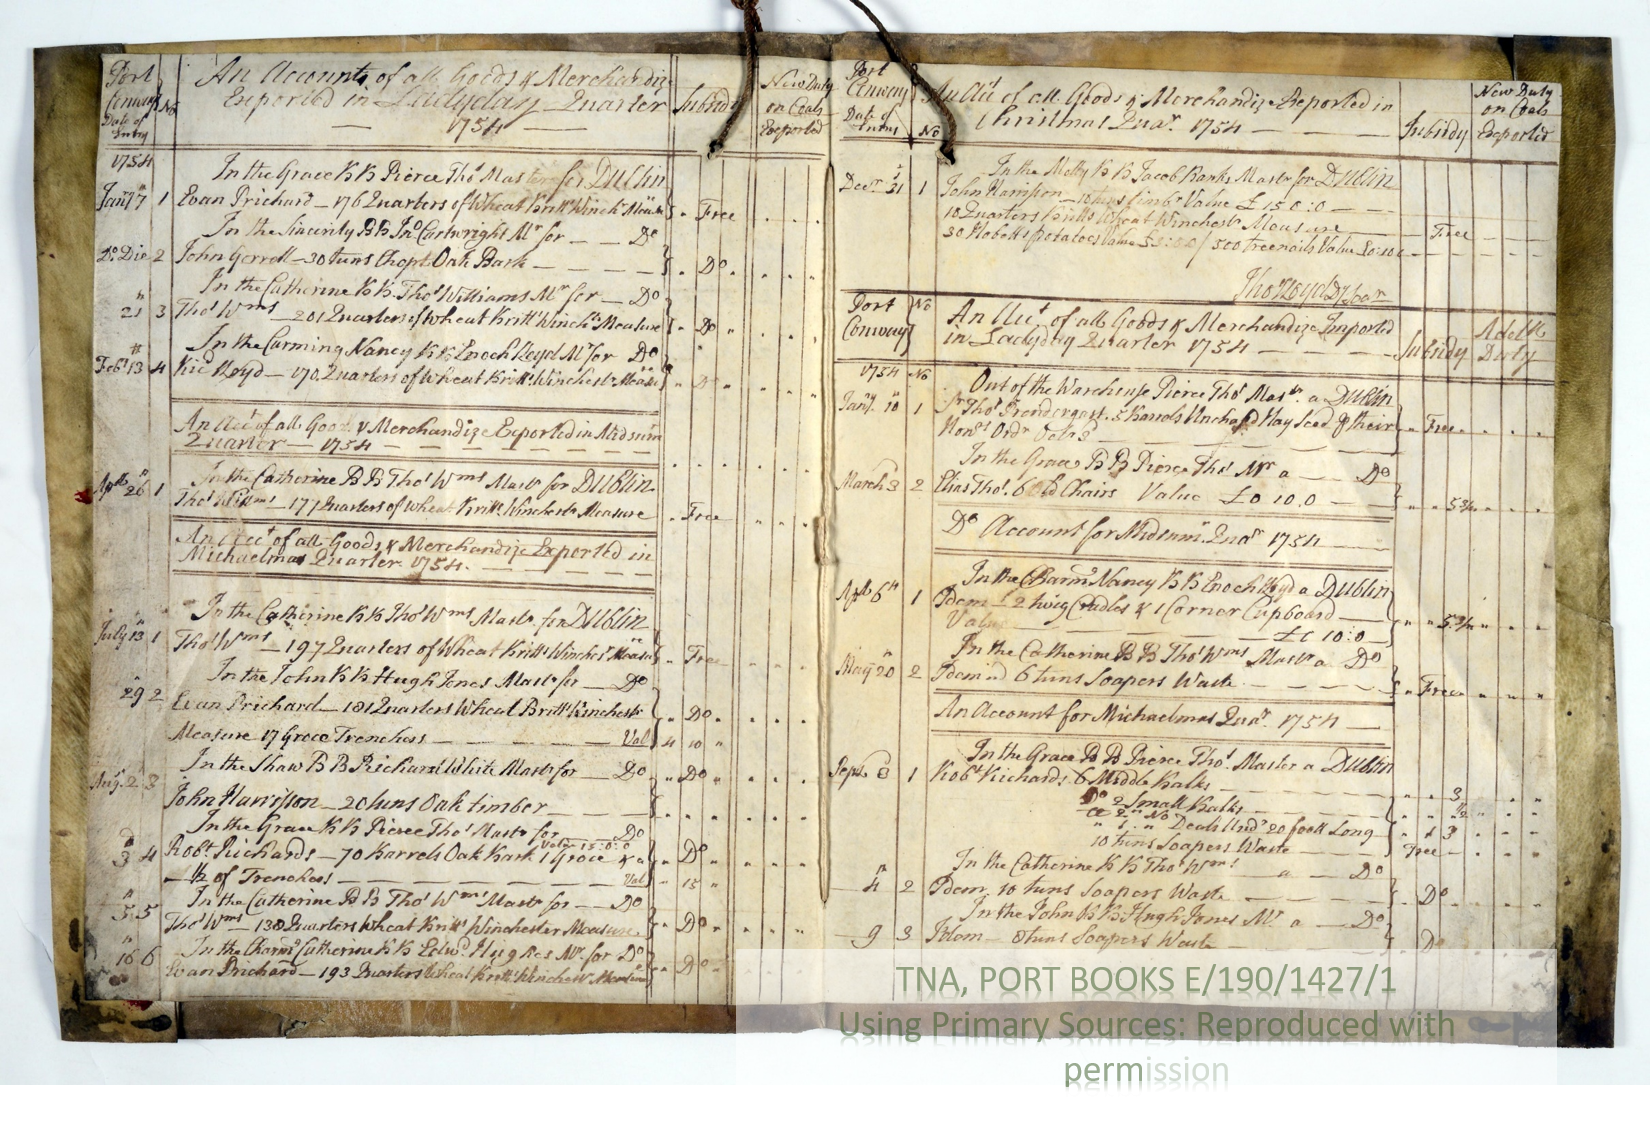 Port
Conway
Date of
Entry
No
An Account of all Goods & Merchandize
Exported in Ladyday Quarter
— 1754 —
Subsidy
New Duty
on Coals
Exported
1754
In the Grace BB Pierce Thos Master for Dublin
Jany 7 1 Evan Prichard — 176 Quarters of Wheat Britt Winchr Measure " Free
In the Sincerity BB Jno Cartwright Mr for — — Do
Do Die 2 John Gorrell — 30 tuns Chopt Oak Bark — — — — — " Do "
In the Catherine BB Thos Williams Mr for — Do
21 3 Thos Wms — 201 Quarters of Wheat Britt Winchr Measure " Do "
In the Carming Nancy BB Enoch Lloyd Mr for Do
Feby 13 4 Ric Lloyd — 170 Quarters of Wheat Britts Winchestr Measure " Do "
An Acct of all Goods & Merchandize Exported in Midsumr
Quarter — 1754 —
In the Catherine BB Thos Wms Mastr for Dublin
Aprl 26 1 Thos Wilams — 177 Quarters of Wheat Britts Winchestr Measure " Free
An Acct of all Goods & Merchandize Exported in
Michaelmas Quarter 1754.
In the Catherine BB Thos Wms Mastr for Dublin
July 13 1 Thos Wms — 197 Quarters of Wheat Britts Winchesr Measur " Free
In the John BB Hugh Jones Mastr for — Do
29 2 Evan Prichard — 181 Quarters Wheat Britt Winchestr " Do "
Measure 17 Groce Trenchers — — — — — Val 4 10 "
In the Shaw BB Richard White Mastr for — Do " Do "
Augt 2 3 John Harrisson — 20 tuns Oak timber — — — —
In the Grace BB Pierce Thos Mastr for — Do
Value 15:0:0
3 4 Robt Richards — 70 Barrels Oak Bark 1 Groce & a " Do "
— ½ of Trenchers — — — — — Val " 15 "
In the Catherine BB Thos Wms Mastr for — Do
5 5 Thos Wms — 138 Quarters Wheat Britt Winchester Measure " Do "
In the Charmg Catherine BB Edwd Hughes Mr for Do
16 6 Evan Prichard — 193 Quarters Wheat Britt Winchestr Measure " Do "
Port
Conway
Date of
Entry
No
An Act of all Goods & Merchandize Exported in
Christmas Quar 1754 — — — —
Subsidy
New Duty
on Coals
Exported
In the Molly BB Jacob Banks Mastr for Dublin
Decr 21 1 John Harrisson — 10 tuns timbr Value £15 0:0 —
10 Quarters Britts Wheat Winchestr Measure — Free — —
30 Hobetts potatoes Value / 500 treenails Value
Thos Lloyd
Port
Conway
No
An Acct of all Goods & Merchandize Imported
in Ladyday Quarter 1754 — — — —
Subsidy
Duty
1754 No
Out of the Warehouse Pierce Thos Mastr a Dublin
Jany 10 1 Sr Thos Prendergast. 5 Barrols Hay Seed of their " Free "
Honrs Ordr
In the Grace BB Pierce Thos Mr a — — Do
March 3 2 Elias Thos. 6 old Chairs Value £0 10.0 — " " 5¾ "
Do Account for Midsumr Quar 1754 —
In the Charmg Nancy BB Enoch Lloyd a Dublin
Aprl 6th 1 Idem — 2 twig Cradles & 1 Corner Cupboard — " " 5¾ "
Value — — — — £ 10:0 —
In the Catherine BB Thos Wms Mastr a Do
May 20 2 Idem 6 tuns Soapers Waste — — — — " Free "
An Account for Michaelmas Quar 1754 —
In the Grace BB Pierce Thos Master a Dublin
Septr 3 1 Robt Richards. 6 Middle Balks — — — " " 3 "
Do 2 Small Balks — — — " " ½ "
Deals Undr 20 foot Long — " 1 3
10 tuns Soapers Waste — — Free —
In the Catherine BB Thos Wms a — Do
4 2 Idem 10 tuns Soapers Waste — — — — Do
In the John BB Hugh Jones Mr a — Do
9 3 Idem — 8 tuns Soapers Waste — — Do
TNA, PORT BOOKS E/190/1427/1
Using Primary Sources: Reproduced with
permission